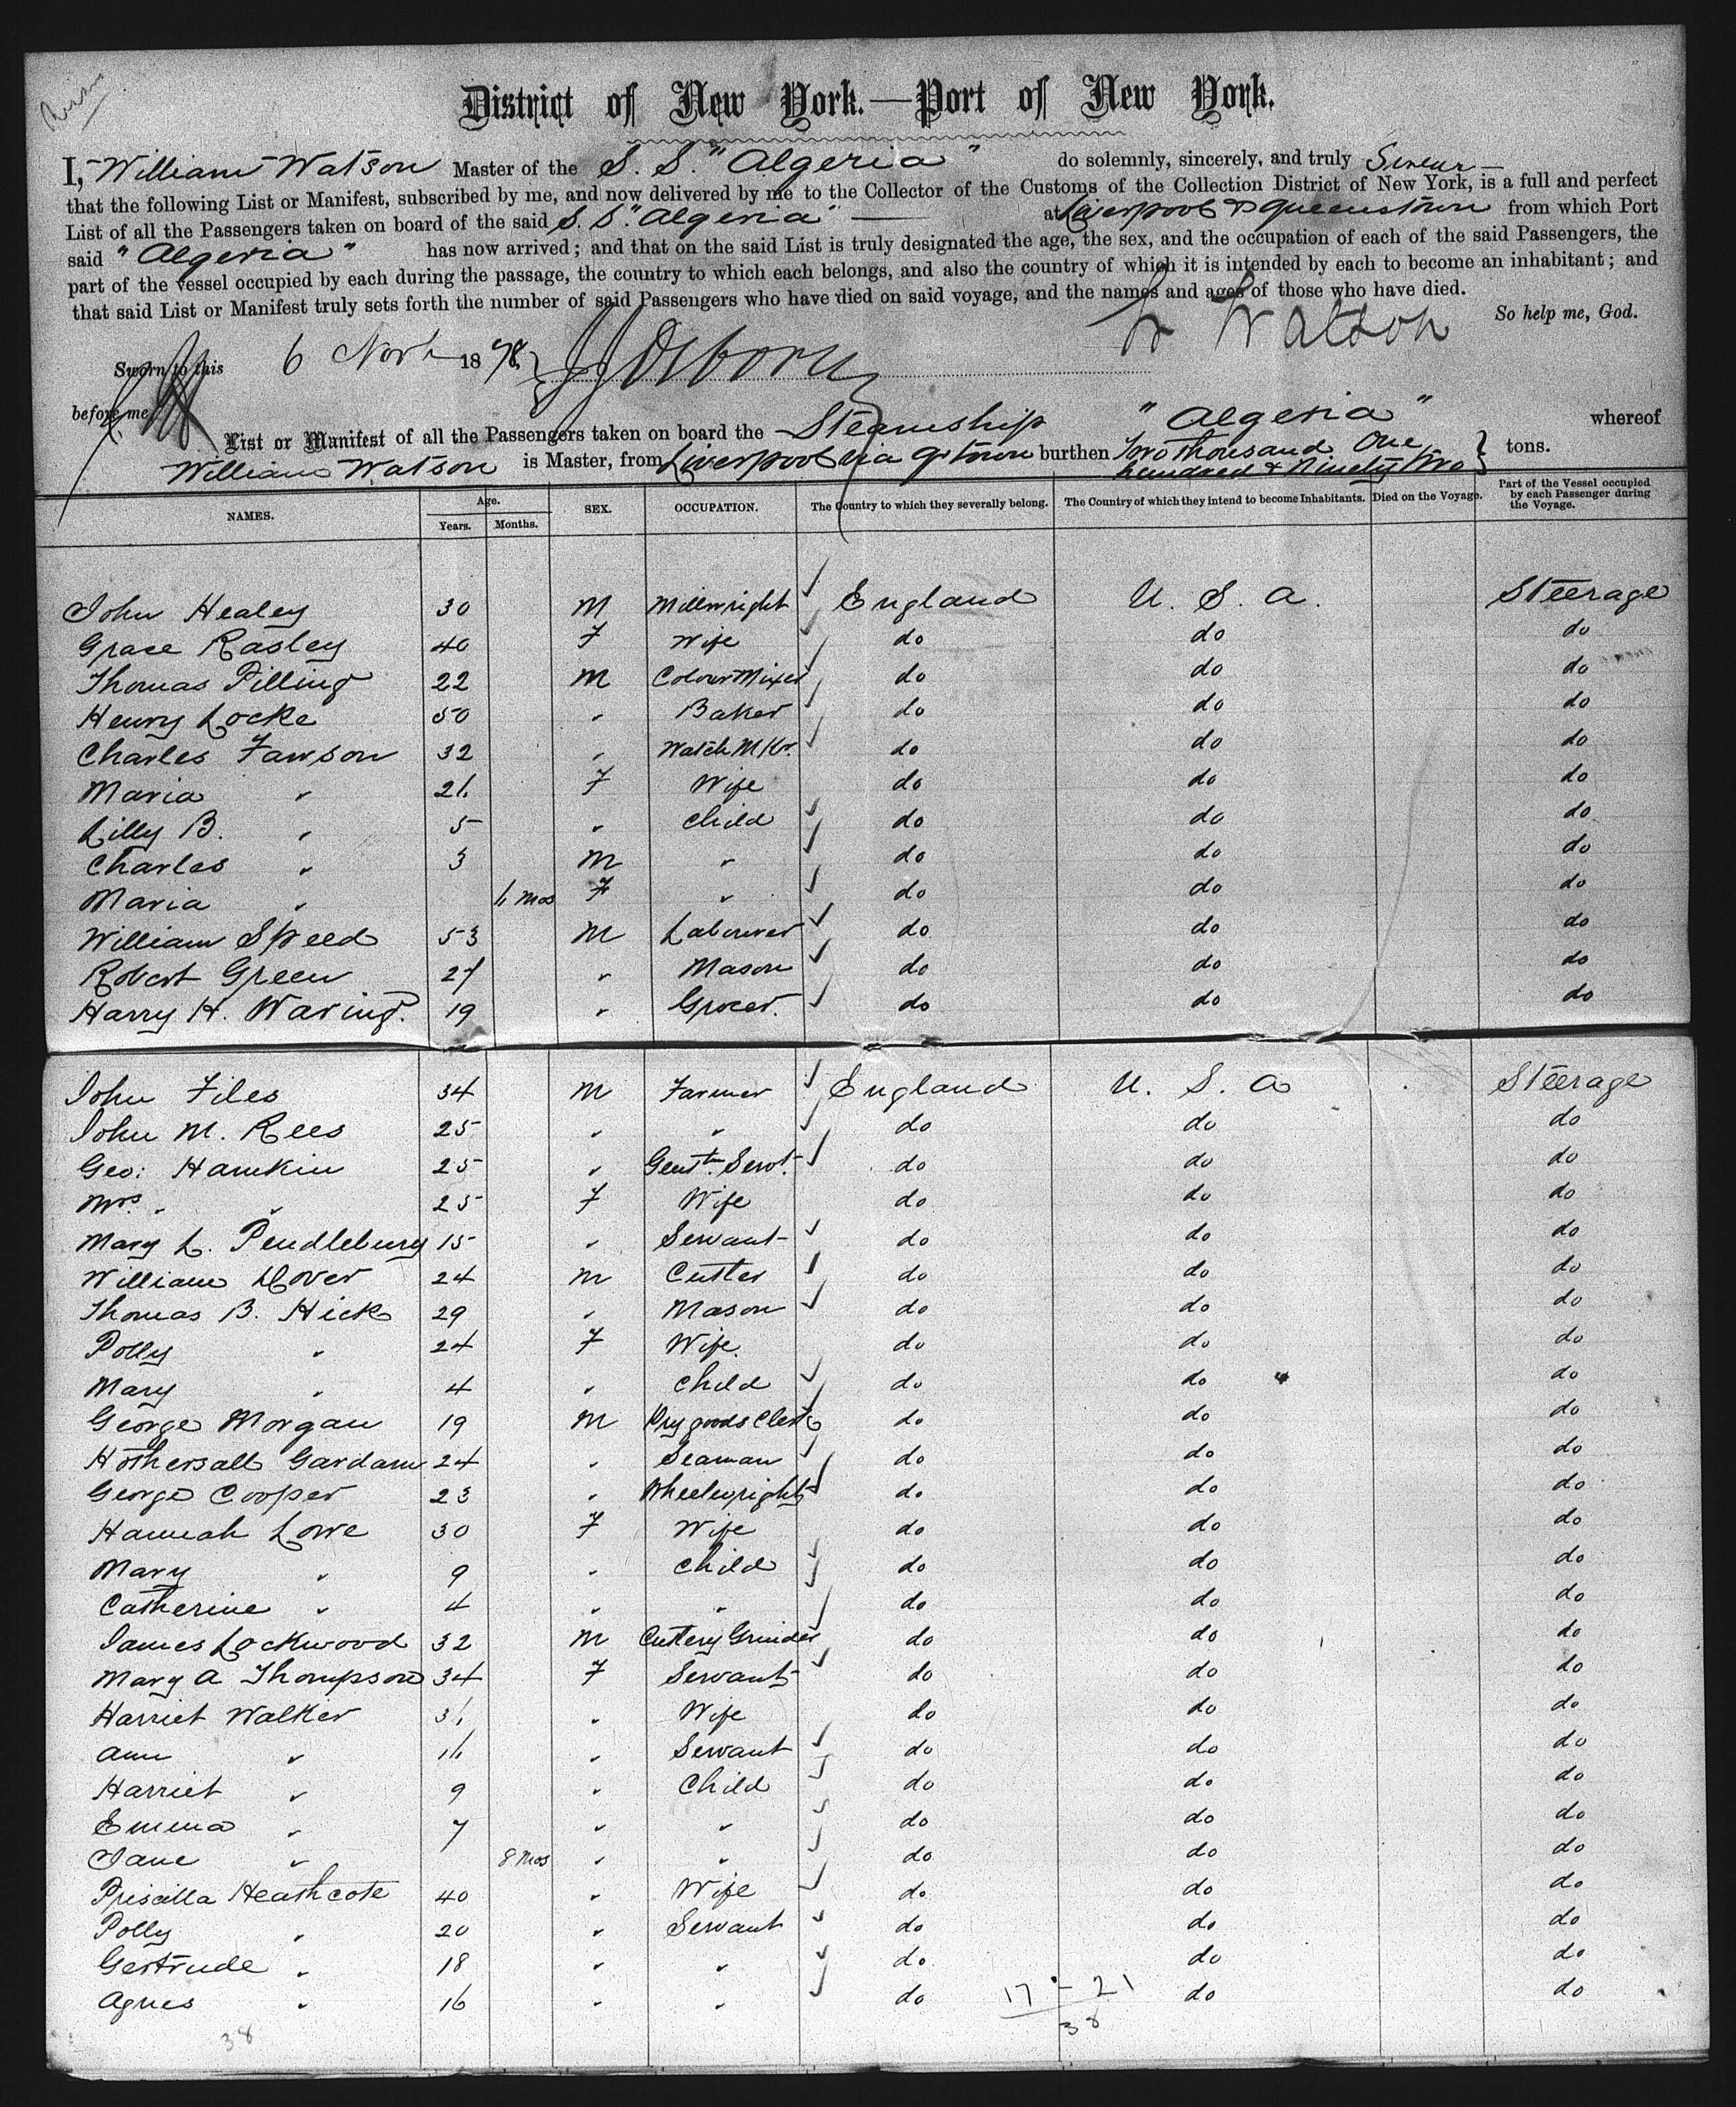 District of New York.—Port of New York.
I, William Watson Master of the S. S. "Algeria" do solemnly, sincerely, and truly Swear
that the following List or Manifest, subscribed by me, and now delivered by me to the Collector of the Customs of the Collection District of New York, is a full and perfect
List of all the Passengers taken on board of the said S. S. "Algeria" at Liverpool & Queenstown from which Port
said "Algeria" has now arrived; and that on the said List is truly designated the age, the sex, and the occupation of each of the said Passengers, the
part of the vessel occupied by each during the passage, the country to which each belongs, and also the country of which it is intended by each to become an inhabitant; and
that said List or Manifest truly sets forth the number of said Passengers who have died on said voyage, and the names and ages of those who have died.
So help me, God.
W Watson
Sworn to this 6 Novr 1878
before me
List or Manifest of all the Passengers taken on board the Steamship "Algeria" whereof
William Watson is Master, from Liverpool via Qtown burthen Two thousand One hundred & Ninety two tons.
NAMES. Age. Years. Months. SEX. OCCUPATION. The Country to which they severally belong. The Country of which they intend to become Inhabitants. Died on the Voyage. Part of the Vessel occupied by each Passenger during the Voyage.
John Healey 30 M Millwright England U. S. A. Steerage
Grace Rasley 40 F Wife do do do
Thomas Pilling 22 M Colour Mixer do do do
Henry Locke 50 " Baker do do do
Charles Fawson 32 " Watch Mkr. do do do
Maria " 26 F Wife do do do
Lilly B. " 5 " Child do do do
Charles " 3 M " do do do
Maria " 6 Mos F " do do do
William Speed 53 M Labourer do do do
Robert Green 27 " Mason do do do
Harry H. Waring. 19 " Grocer. do do do
John Files 34 M Farmer England U. S. A Steerage
John M. Rees 25 " " do do do
Geo: Hamkin 25 " Gentn. Servt. do do do
Mrs. " 25 F Wife do do do
Mary L. Pendlebury 15 " Servant do do do
William Dover 24 M Cutter do do do
Thomas B. Hick 29 " Mason do do do
Polly " 24 F Wife. do do do
Mary " 4 " Child do do do
George Morgan 19 M Dry goods Clerk do do do
Hothersall Gardam 24 " Seaman do do do
George Cooper 23 " Wheelwright do do do
Hannah Lowe 30 F Wife do do do
Mary " 9 " Child do do do
Catherine " 4 " " do do do
James Lockwood 32 M Cutlery Grinder do do do
Mary A Thompson 34 F Servant do do do
Harriet Walker 36 " Wife do do do
Ann " 16 " Servant do do do
Harriet " 9 " Child do do do
Emma " 7 " " do do do
Jane " 8 Mos " " do do do
Priscilla Heathcote 40 " Wife do do do
Polly " 20 " Servant do do do
Gertrude " 18 " " do do do
Agnes " 16 " " do do do
17 - 21
38
38